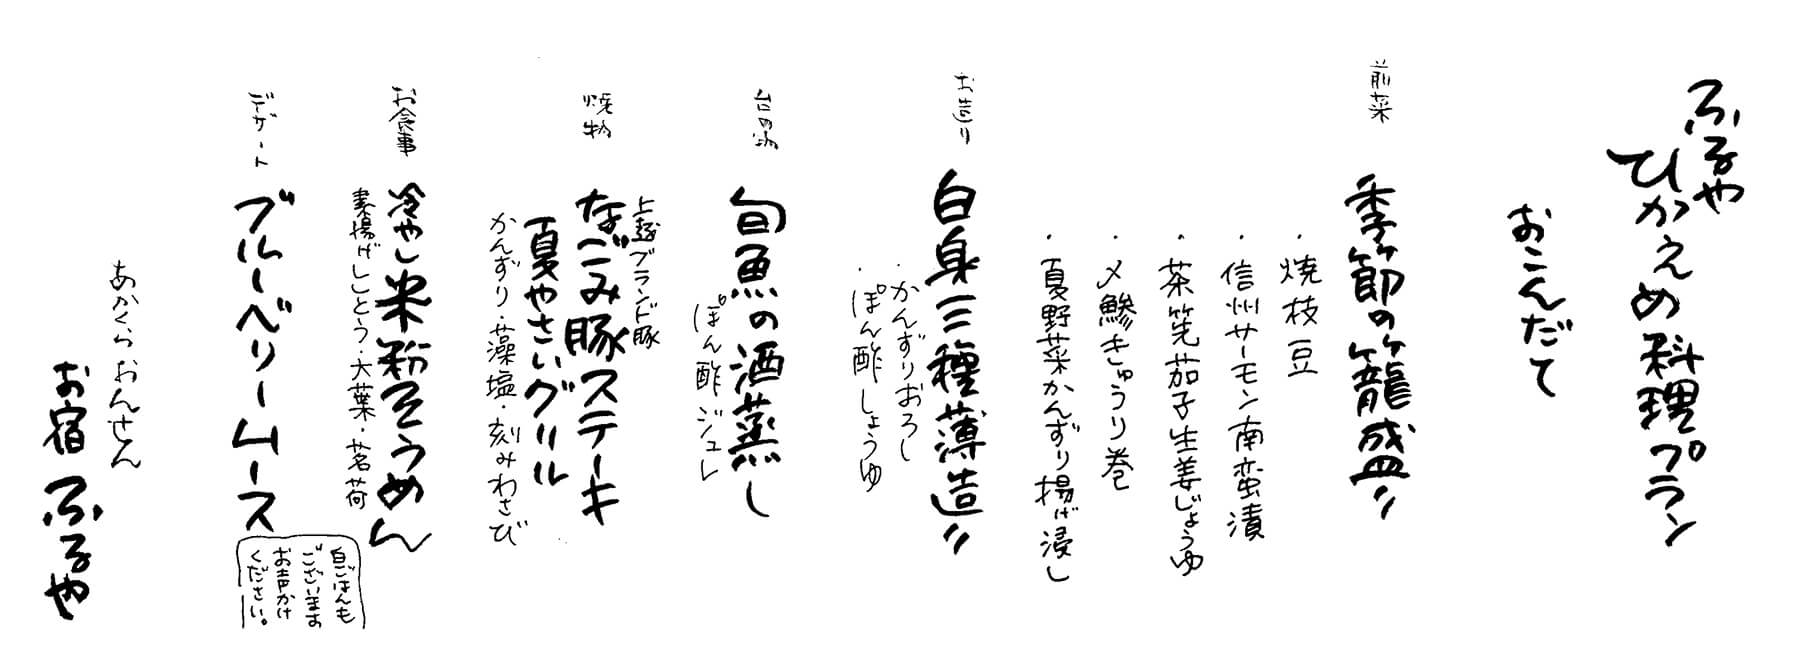 ふるや
ひかえめ料理プラン
おこんだて
前菜
季節の籠盛り
・焼枝豆
・信州サーモン南蛮漬
・茶筅茄子生姜じょうゆ
・〆鯵きゅうり巻
・夏野菜かんずり揚げ浸し
お造り
白身三種薄造り
・かんずりおろし
・ぽん酢しょうゆ
台の物
旬魚の酒蒸し
ぽん酢ジュレ
焼物
上越ブランド豚
なごみ豚ステーキ
夏やさいグリル
かんずり・藻塩・刻みわさび
お食事
冷やし米粉そうめん
素揚げししとう・大葉・茗荷
デザート
ブルーベリームース
白ごはんも
ございます
お声かけ
ください。
あかくらおんせん
お宿 ふるや